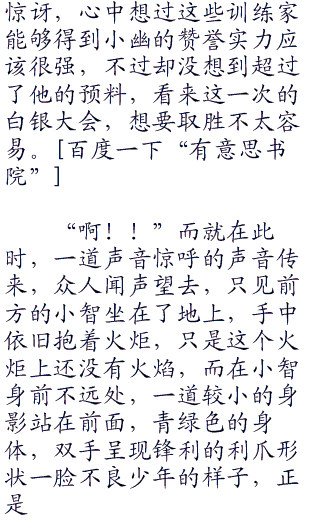 惊讶，心中想过这些训练家
能够得到小幽的赞誉实力应
该很强，不过却没想到超过
了他的预料，看来这一次的
白银大会，想要取胜不太容
易。[百度一下“有意思书
院”]
“啊！！”而就在此
时，一道声音惊呼的声音传
来，众人闻声望去，只见前
方的小智坐在了地上，手中
依旧抱着火炬，只是这个火
炬上还没有火焰，而在小智
身前不远处，一道较小的身
影站在前面，青绿色的身
体，双手呈现锋利的利爪形
状一脸不良少年的样子，正
是